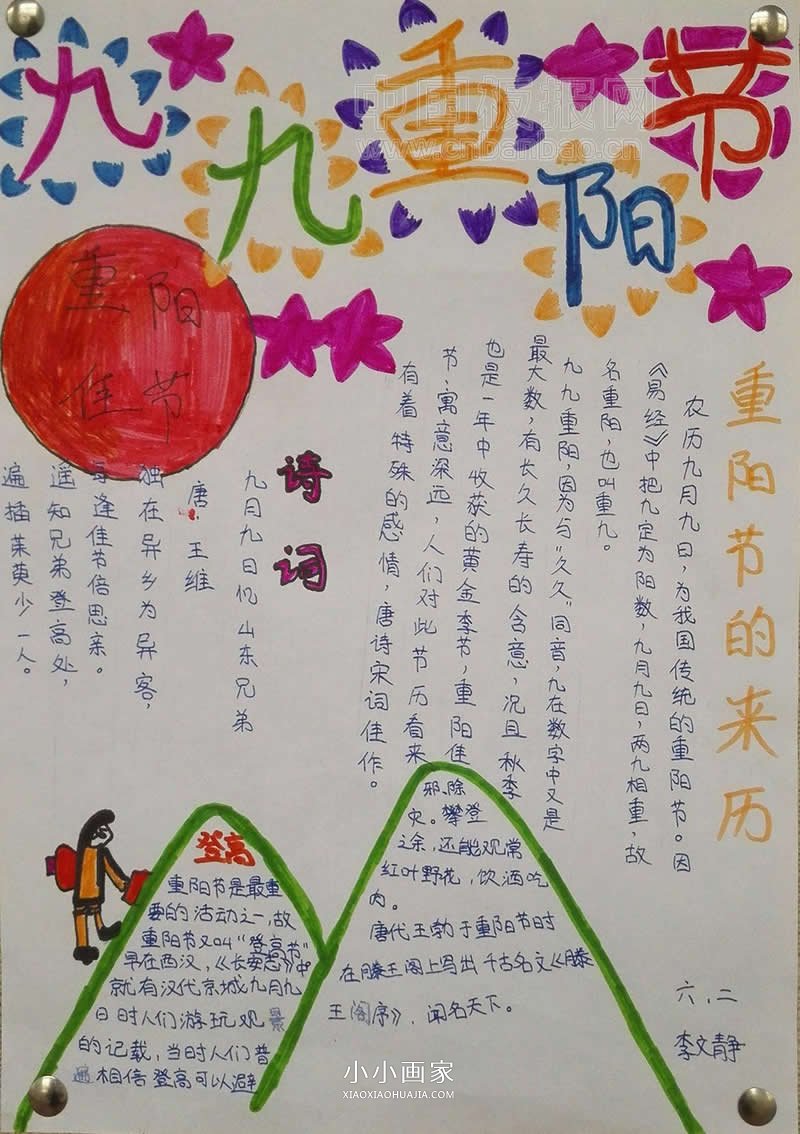 九九重阳节
中国板报网
重阳
佳节
重阳节的来历
农历九月九日，为我国传统的重阳节。因
《易经》中把九定为阳数，九月九日，两九相重，故
名重阳，也叫重九。
九九重阳，因为与“久久”同音，九在数字中又是
最大数，有长久长寿的含意，况且秋季
也是一年中收获的黄金季节，重阳佳
节，寓意深远，人们对此节历看来
有着特殊的感情，唐诗宋词佳作。
诗词
九月九日忆山东兄弟
唐．王维
独在异乡为异客，
每逢佳节倍思亲。
遥知兄弟登高处，
遍插茱萸少一人。
登高
重阳节是最重
要的活动之一，故
重阳节又叫“登高节”
早在西汉，《长安志》中
就有汉代京城九月九
日时人们游玩观景
的记载，当时人们普
遍相信登高可以避
邪、除
灾。攀登
之余，还能观常
红叶野花，饮酒吃
肉。
唐代王勃于重阳节时
在滕王阁上写出千古名文《滕
王阁序》，闻名天下。
六．二
李文静
小小画家
XIAOXIAOHUAJIA.COM